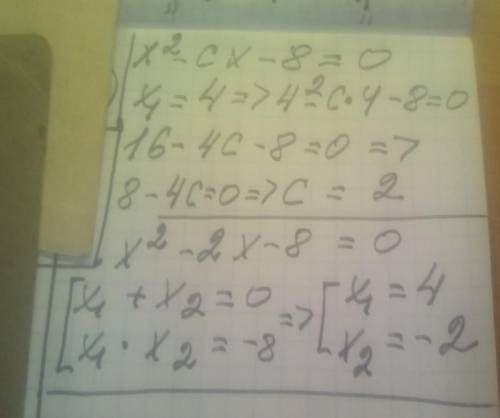 x² - cx - 8 = 0
x₁ = 4 => 4² - c·4 - 8 = 0
16 - 4c - 8 = 0 =>
8 - 4c = 0 => c = 2
x² - 2x - 8 = 0
[x₁ + x₂ = 0 => [x₁ = 4
[x₁ · x₂ = -8 => [x₂ = -2